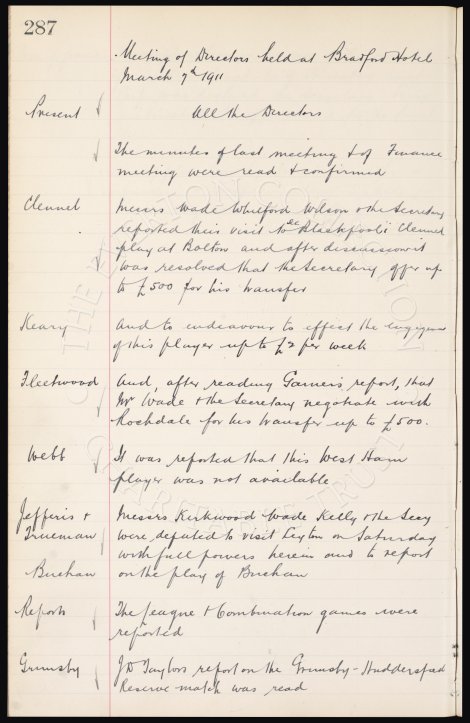 287
Meeting of Directors held at Bradford Hotel
March 7th 1911
Present All the Directors
The minutes of last meeting & of Finance
meeting were read & confirmed
Clennel Messrs Wade Whitford Wilson & the Secretary
reported their visit to see Blackpool's Clennel
play at Bolton and after discussion it
was resolved that the Secretary offer up
to £500 for his transfer
Keary And to endeavour to effect the engagement
of this player up to £2 per week
Fleetwood And, after reading Gamer's report, that
Mr Wade & the Secretary negotiate with
Rochdale for his transfer up to £500.
Webb It was reported that this West Ham
player was not available
Jefferis & Messrs Kirkwood Wade Kelly & the Secy
Trueman were deputed to visit Leyton on Saturday
with full powers herein and to report
Buchan on the play of Buchan
Reports The League & Combination games were
reported
Grimsby J D Taylors report on the Grimsby - Huddersfield
Reserve match was read
THE EVERTON COLLECTION
CHARITABLE TRUST